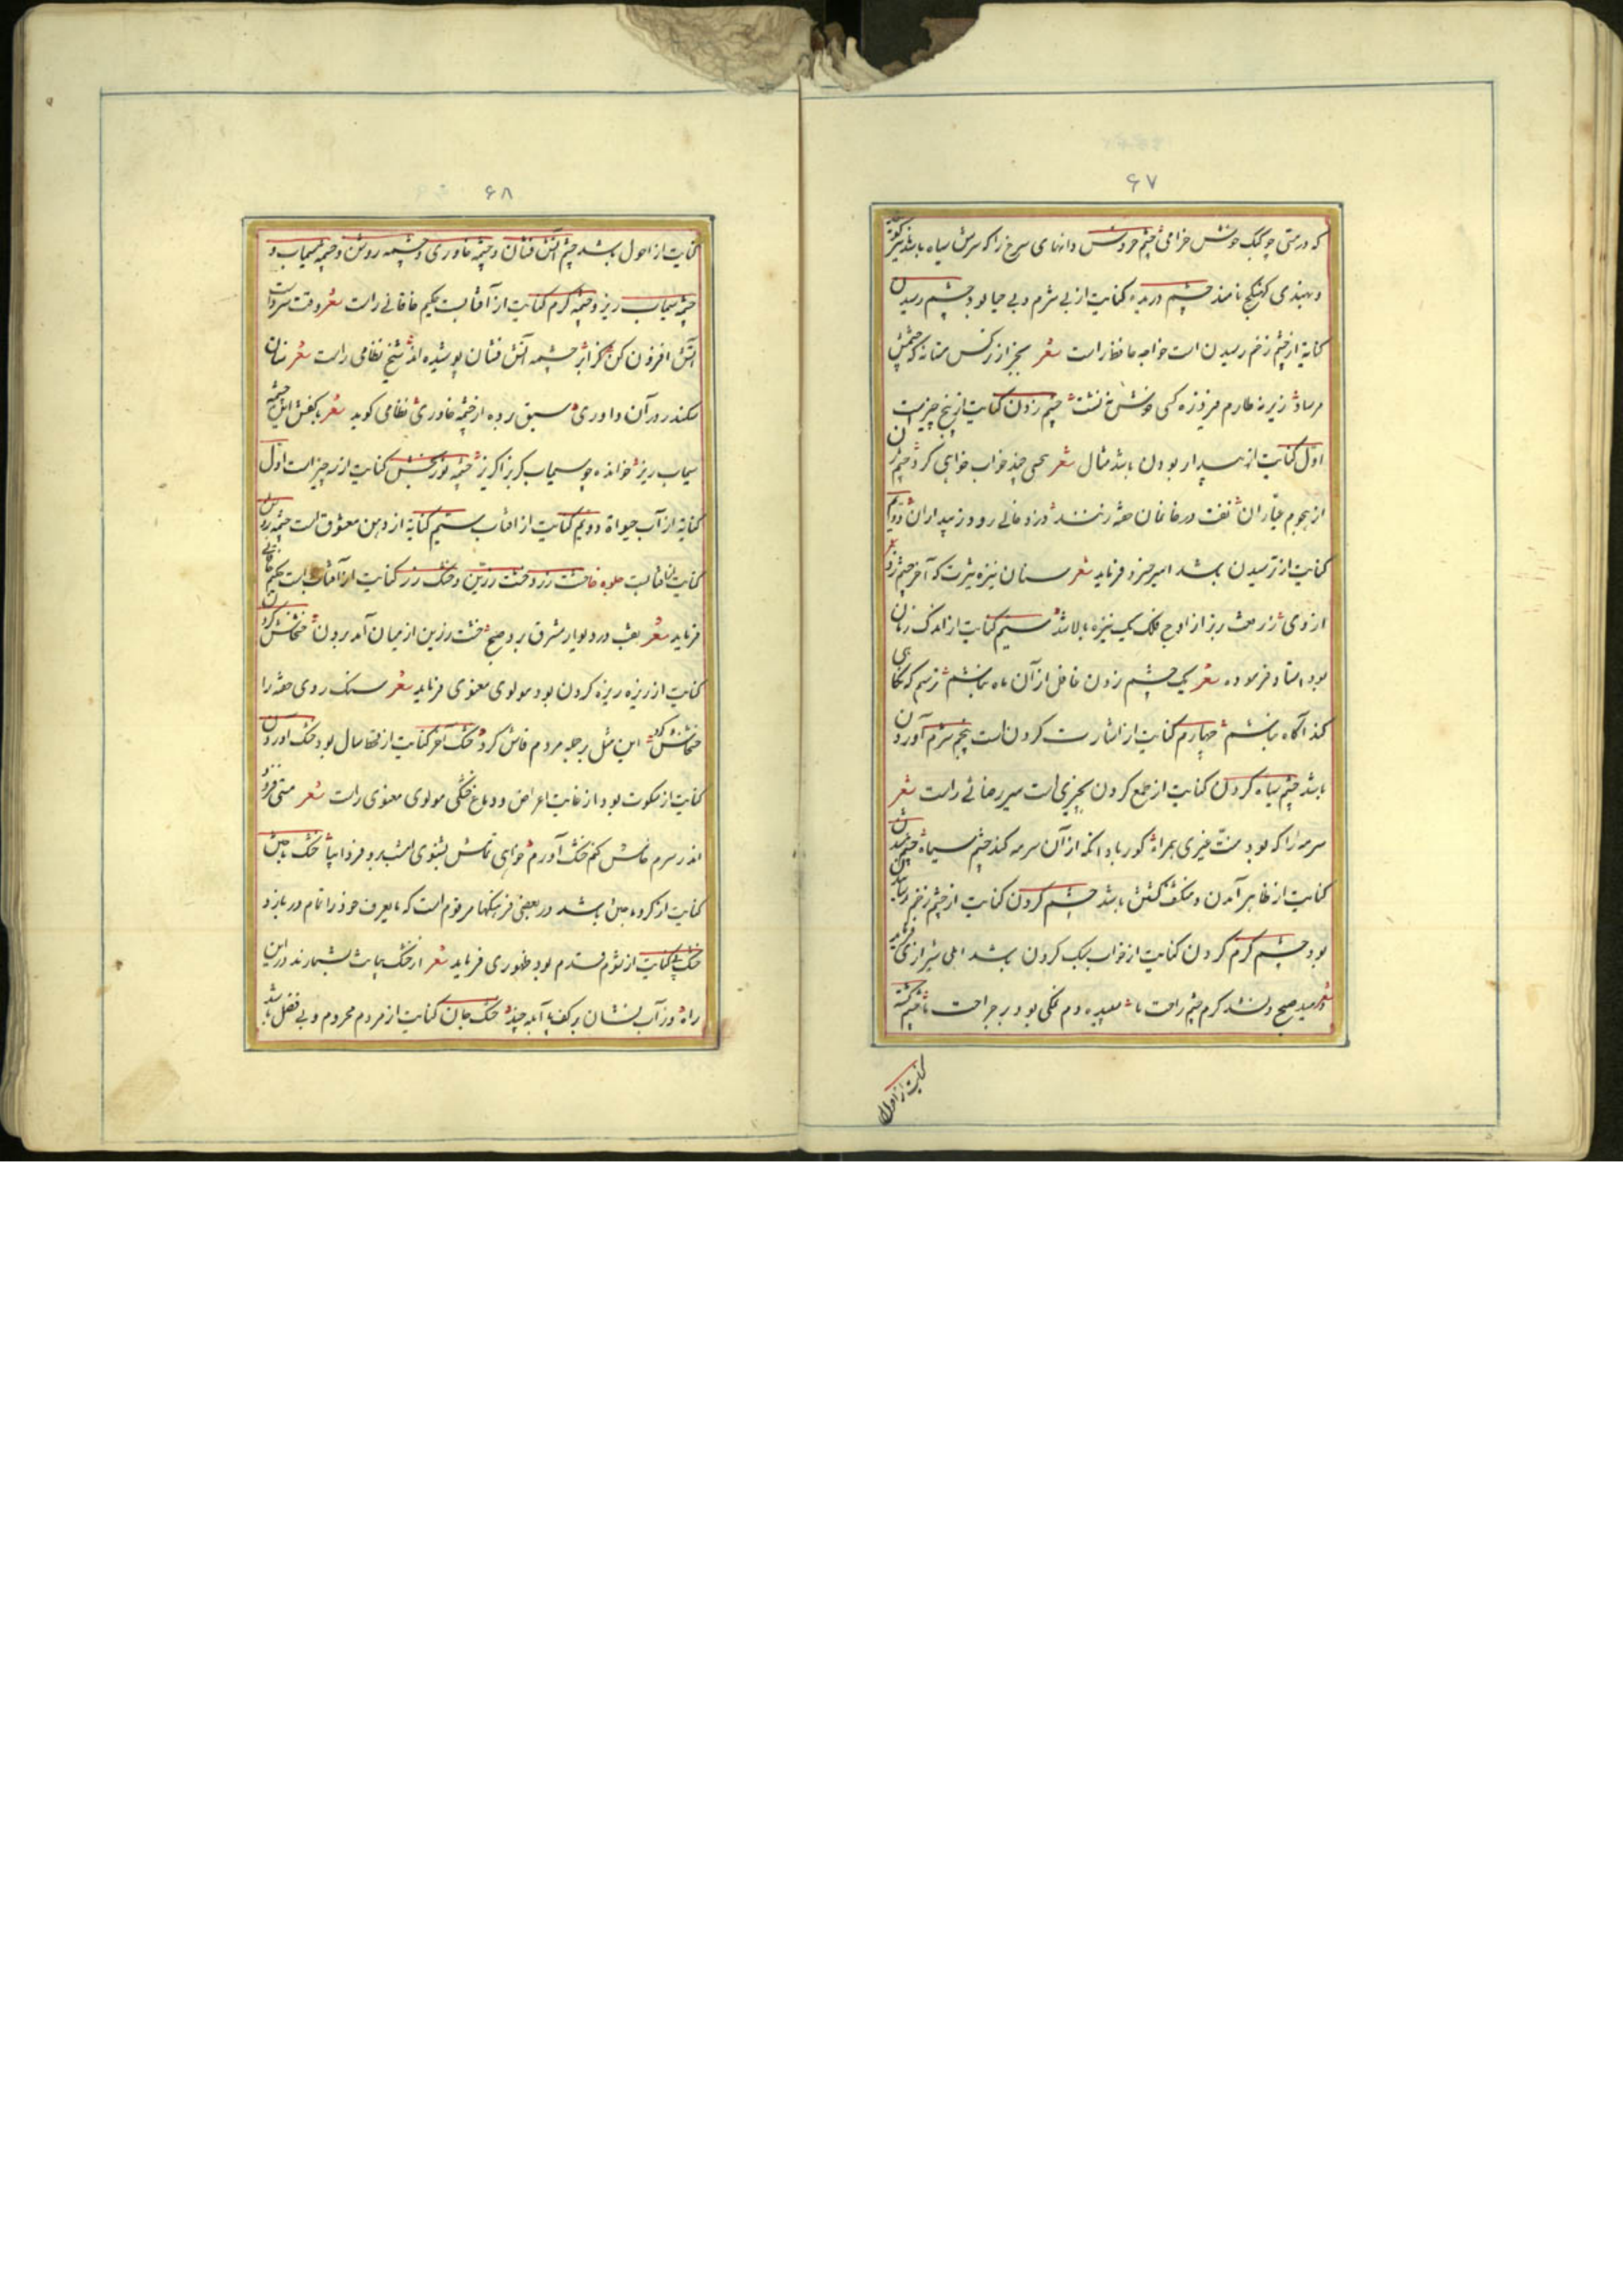 ۶۷
که در مستی چو کبک خوش خرامی چشم خروس دانهای سرخ را که سرش سیاه باشد نیز گویند
و بهندی کهنگچی نامند چشم دریده کنایت از بی شرم و بی حیا بود چشم رسیدن
کنایة از چشم زخم رسیدن است خواجه حافظ راست شعر بجز از نرکس مستانه که چشمش
مرساد زیر نه طارم فیروزه کسی خوش ننشست چشم زدن کنایت از پنج چیز است
اول کنایت از بیدار بودن باشد مثال شعر بختی چند خواب خواهی کرد چشم زن
از هجوم عیاران نفت در خانمان حقه زنند دزد خانی رود ز بیداران دویم
کنایت از ترسیدن باشد امیر خسرو فرماید شعر سنان نیزه تیرت که آخر چشم زد
از وی ز اوج فلک یک نیزه بالا شد سیم کنایت از اندک زمان
بود استاد فرموده شعر یک چشم زدن غافل از آن ماه نباشم ترسم که نگاهی
کند آگاه نباشم چهارم کنایت از اشارت کردن است پنجم شرم آوردن
باشد چشم سیاه کردن کنایت از طمع کردن بچیزی است میر رضائی راست شعر
سرمه را که بود منت غیری همراه کور باد آنکه از آن سرمه کند چشم سیاه چشم شدن
کنایت از ظاهر آمدن و منکشف گشتن باشد چشم کردن کنایت از چشم زخم رسانیدن
بود چشم گرم کردن کنایت از خواب سبک کردن باشد اهلی شیرازی فرماید
شعر دمید صبح و نشد گرم چشم راحت ما سپیده دم نمکی بود بر جراحت ما چشم گشته
کنایت از احول
۶۸
کنایت از احول باشد چشم آتش فشان و چشمه خاوری و چشمه روشن و چشمه سیماب و
چشمه سیماب ریز و چشمه گرم کنایت از آفتابست حکیم خاقانی راست شعر وقت سرد است
آتش افزون کن کز ابر چشمه آتش فشان پوشیده اند شیخ نظامی راست شعر سنان
سکندر در آن داوری سبق برده از چشمه خاوری نظامی گوید شعر بگفت این چشمه
سیماب ریز خوانده چو سیماب کر بزاکریز چشمه نوربخش کنایت از سه چیز است اول
کنایه از آب حیوة دویم کنایت از افتاب سیم کنایة از دهن معشوق است چشمه روشن
کنایت از آفتابست خشت زر و خشت زرین و خنگ زر کنایت از آفتاب است حکیم خاقانی
فرماید شعر نقب در دیوار مشرق برد صبح خشت زرین از میان آمد برون خشخاش کردن
کنایت از ریزه ریزه کردن بود مولوی معنوی فرماید شعر سنگ روی حقه را
خشخاش کرد این مثل بر جمله مردم فاش کرد خشک آخر کنایت از قحط سال بود خشک آوردن
کنایت از سکوت بود از غایت اعراض و دماغ خشکی مولوی معنوی راست شعر
اندر سرم خامش کنم خشک آورم خواهی تمامش بشنوی امشب برو فردا بیا خشک باختن
کنایت از گرو باختن باشد در بعضی فرهنگها مرقوم است که با حریف خود را تمام دربازد
خشک پی کنایت از شوم قدم بود ظهوری فرماید شعر از خشک پیانت بشمارند در این
راه ور آب فشان بر کف پا آبله چند خشک جان کنایت از مردم محروم و بی فضل باشد